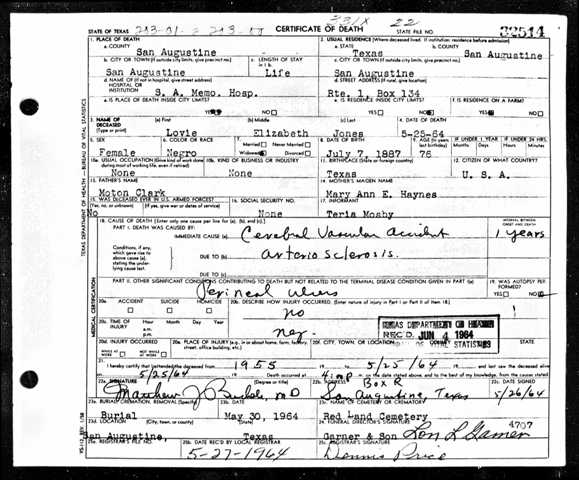 STATE OF TEXAS
CERTIFICATE OF DEATH
331X
22
STATE FILE NO. 32514
1. PLACE OF DEATH
a. COUNTY
San Augustine
2. USUAL RESIDENCE (Where deceased lived. If institution: residence before admission)
a. STATE
Texas
b. COUNTY
San Augustine
b. CITY OR TOWN (If outside city limits, give precinct no.)
San Augustine
c. LENGTH OF STAY in 1 b.
Life
c. CITY OR TOWN (If outside city limits, give precinct no.)
San Augustine
d. NAME OF (If not in hospital, give street address) HOSPITAL OR INSTITUTION
S. A. Memo. Hosp.
d. STREET ADDRESS (If rural, give location)
Rte. 1, Box 134
e. IS PLACE OF DEATH INSIDE CITY LIMITS?
YES NO
e. IS RESIDENCE INSIDE CITY LIMITS?
YES NO
f. IS RESIDENCE ON A FARM?
YES NO
3. NAME OF DECEASED (Type or print)
(a) First
Lovie
(b) Middle
Elizabeth
(c) Last
Jones
4. DATE OF DEATH
5-25-64
5. SEX
Female
6. COLOR OR RACE
Negro
7. Married Never Married
Widowed Divorced
8. DATE OF BIRTH
July 7, 1887
9. AGE
76
IF UNDER 1 YEAR
Months Days
IF UNDER 24 HRS.
Hours Min.
10a. USUAL OCCUPATION (Give kind of work done during most of working life, even if retired)
None
10b. KIND OF BUSINESS OR INDUSTRY
None
11. BIRTHPLACE (State or foreign country)
Texas
12. CITIZEN OF WHAT COUNTRY?
U. S. A.
13. FATHER'S NAME
Moton Clark
14. MOTHER'S MAIDEN NAME
Mary Ann E. Haynes
15. WAS DECEASED EVER IN U.S. ARMED FORCES?
(Yes, no, or unknown) (If yes, give war or dates of service)
No
16. SOCIAL SECURITY NO.
None
17. INFORMANT
Teria Mosby
18. CAUSE OF DEATH [Enter only one cause per line for (a), (b), and (c).]
PART I. DEATH WAS CAUSED BY:
IMMEDIATE CAUSE (a) Cerebral Vascular Accident
INTERVAL BETWEEN ONSET AND DEATH
1 years
Conditions, if any, which gave rise to above cause (a), stating the underlying cause last.
DUE TO (b) Arterio sclerosis.
DUE TO (c)
PART II. OTHER SIGNIFICANT CONDITIONS CONTRIBUTING TO DEATH BUT NOT RELATED TO THE TERMINAL DISEASE CONDITION GIVEN IN PART I(a)
Perineal ulcers
19. WAS AUTOPSY PERFORMED?
YES NO
20a. ACCIDENT SUICIDE HOMICIDE
20b. DESCRIBE HOW INJURY OCCURRED. (Enter nature of injury in Part I or Part II of item 18.)
no
20c. TIME OF INJURY
a.m.
p.m.
TEXAS DEPARTMENT OF HEALTH
REC'D JUN 4 1964
STATISTICS
20d. INJURY OCCURRED
WHILE AT WORK NOT WHILE AT WORK
20e. PLACE OF INJURY (e.g., in or about home, farm, factory, street, office building, etc.)
20f. CITY, TOWN, OR LOCATION
COUNTY
21. I hereby certify that I attended the deceased from 1955 to 5/25/64 and last saw the deceased alive on
5/25/64 Death occurred at 4:
22a. SIGNATURE (Degree or title)
MD
22b. ADDRESS
Box R
San Augustine Texas
22c. DATE SIGNED
5/26/64
23a. BURIAL, CREMATION, REMOVAL (Specify)
Burial
23b. DATE
May 30, 1964
23c. NAME OF CEMETERY OR CREMATORY
Red Land Cemetery
23d. LOCATION (City, town, or county) (State)
San Augustine, Texas
24. FUNERAL DIRECTOR'S SIGNATURE
Garner & Son Lon L Garner 4707
25a. REGISTRAR'S FILE NO.
25b. DATE REC'D BY LOCAL REGISTRAR
5-27-1964
25c. REGISTRAR'S SIGNATURE
Dennis Price
TEXAS DEPARTMENT OF HEALTH — BUREAU OF VITAL STATISTICS
MEDICAL CERTIFICATION